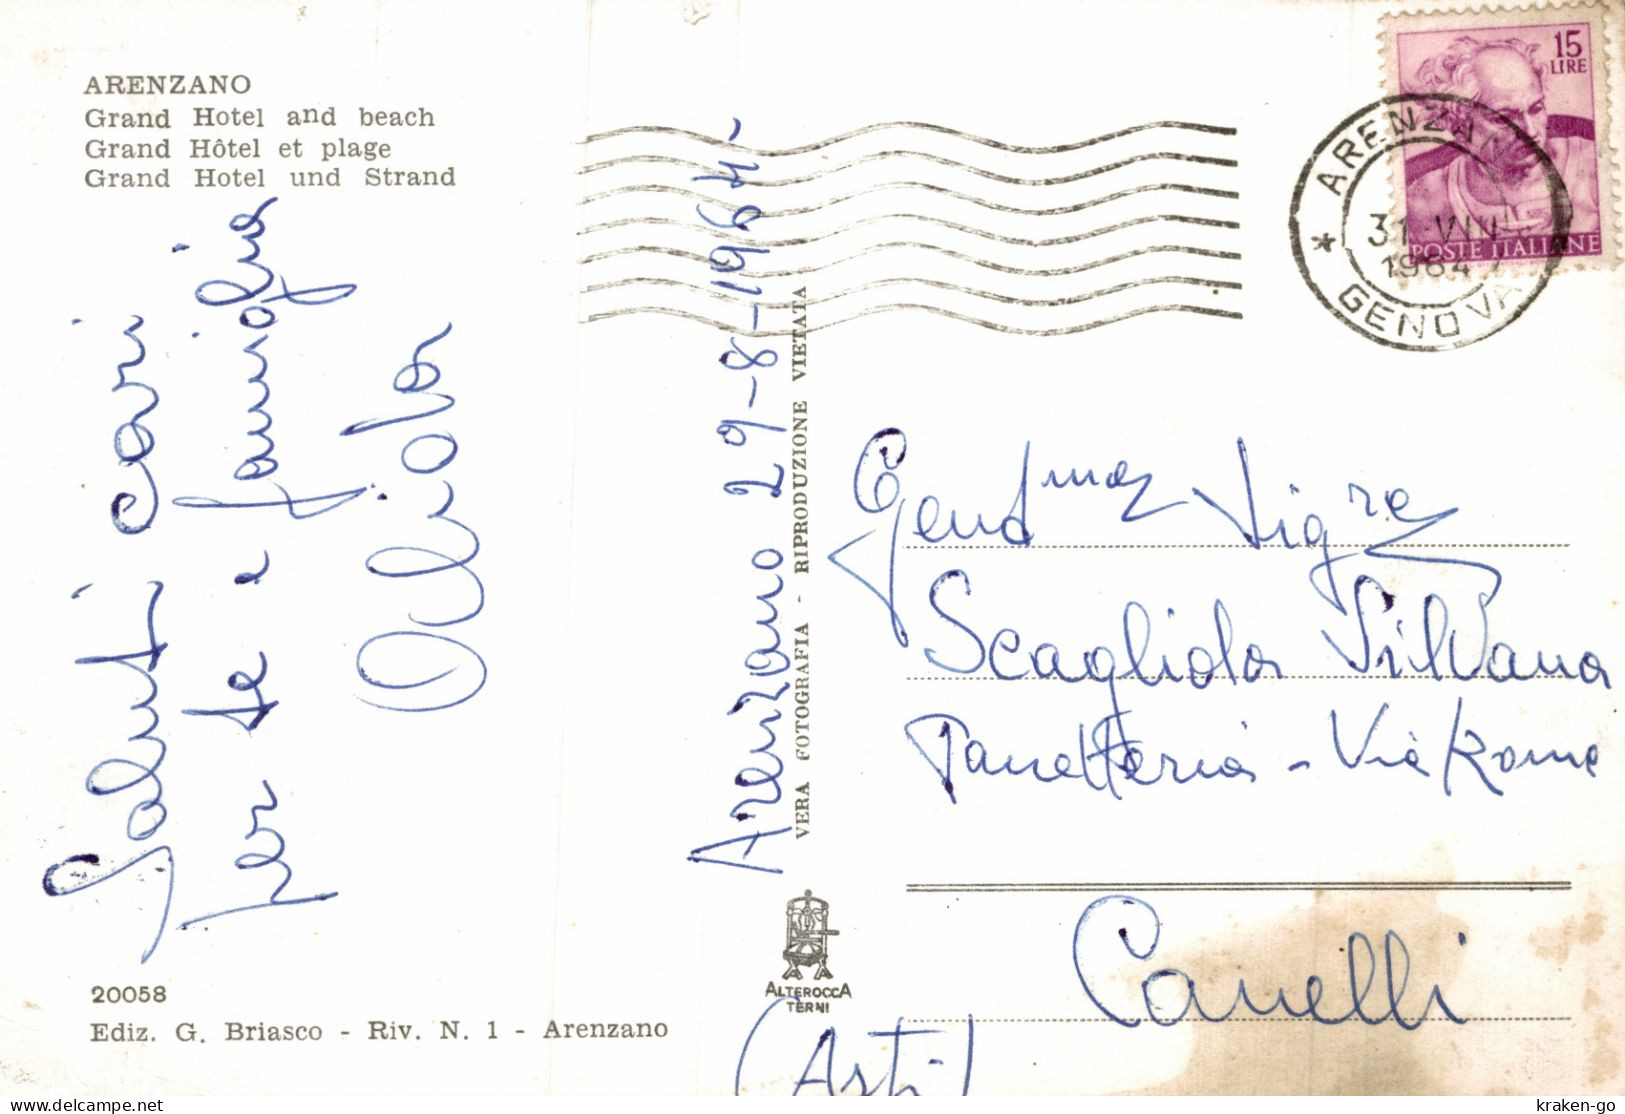 ARENZANO
Grand Hotel and beach
Grand Hôtel et plage
Grand Hotel und Strand
Saluti cari
per te e famiglia
Arenzano 29-8-1964-
VERA FOTOGRAFIA - RIPRODUZIONE VIETATA
15
LIRE
POSTE ITALIANE
ARENZANO
31 VIII
1964
* GENOVA
Gent.ma Sig.re
Scagliola Silvana
Panetteria - Via Roma
Canelli
(Asti)
ALTEROCCA
TERNI
20058
Ediz. G. Briasco - Riv. N. 1 - Arenzano
kraken-go